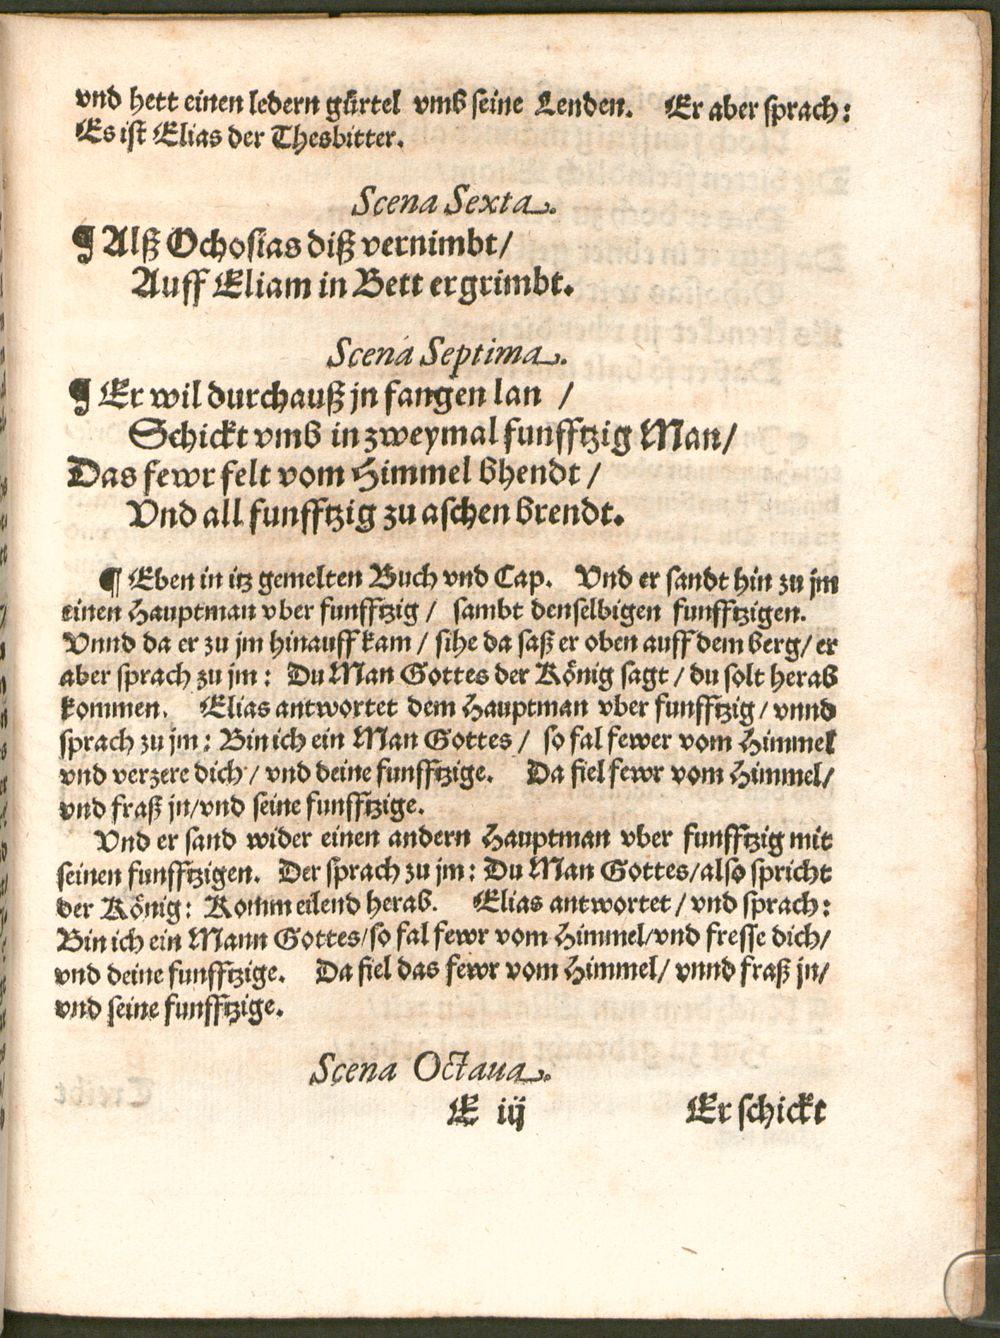 vnd hett einen ledern gürtel vmb seine Lenden. Er aber sprach:
Es ist Elias der Thesbitter.
Scena Sexta.
¶ Alß Ochosias diß vernimbt/
Auff Eliam in Bett ergrimbt.
Scena Septima.
¶ Er wil durchauß jn fangen lan /
Schickt vmb in zweymal funfftzig Man/
Das fewr felt vom Himmel bhendt /
Vnd all funfftzig zu aschen brendt.
¶ Eben in itz gemelten Buch vnd Cap. Vnd er sandt hin zu jm
einen Hauptman vber funfftzig / sambt denselbigen funfftzigen.
Vnnd da er zu jm hinauff kam / sihe da saß er oben auff dem berg / er
aber sprach zu jm: Du Man Gottes der König sagt / du solt herab
kommen. Elias antwortet dem Hauptman vber funfftzig / vnnd
sprach zu jm: Bin ich ein Man Gottes / so fal fewer vom Himmel
vnd verzere dich / vnd deine funfftzige. Da fiel fewr vom Himmel/
vnd fraß jn/vnd seine funfftzige.
Vnd er sand wider einen andern Hauptman vber funfftzig mit
seinen funfftzigen. Der sprach zu jm: Du Man Gottes/also spricht
der König: Komm eilend herab. Elias antwortet / vnd sprach:
Bin ich ein Mann Gottes/so fal fewr vom Himmel/vnd fresse dich/
vnd deine funfftzige. Da fiel das fewr vom Himmel/ vnnd fraß jn/
vnd seine funfftzige.
Scena Octaua.
E iij Er schickt